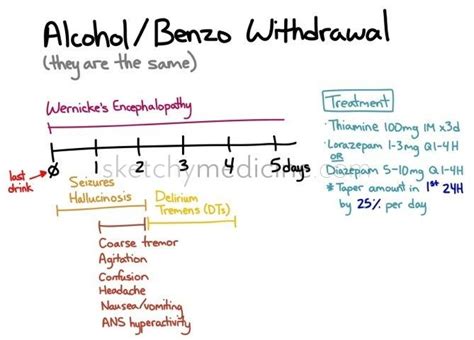 Alcohol/Benzo Withdrawal
(they are the same)
Wernicke's Encephalopathy
0 1 2 3 4 5 days
last drink
sketchymedicine.com
Seizures
Hallucinosis
Delirium
Tremens (DTs)
Coarse tremor
Agitation
Confusion
Headache
Nausea/vomiting
ANS hyperactivity
Treatment
· Thiamine 100mg IM x3d
· Lorazepam 1-3mg Q1-4H
OR
Diazepam 5-10mg Q1-4H
* Taper amount in 1st 24H
by 25% per day